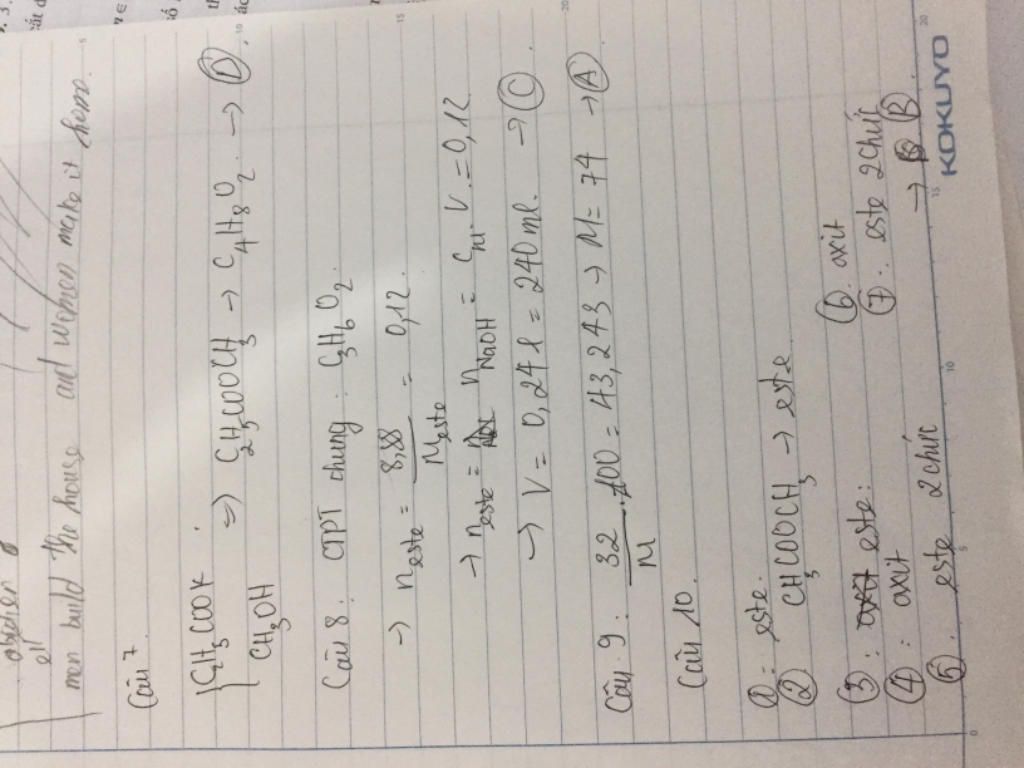 men build the house and women make it home.
Câu 7
C2H5COOK
CH3OH
=> C2H5COOCH3 -> C4H8O2 -> D.
Câu 8. CTPT chung: C3H6O2.
-> n este = 8,88 / M este = 0,12.
-> n este = n NaOH = CM. V = 0,12
-> V = 0,24 l = 240 ml. -> C
Câu 9. 32 / M . 100 = 43,243 -> M = 74 -> A
Câu 10.
①: este.
② CH3COOCH3 -> este.
③: este.
④: axit
⑤. este 2 chức
⑥. axit
⑦: este 2 chức
-> B.
KOKUYO